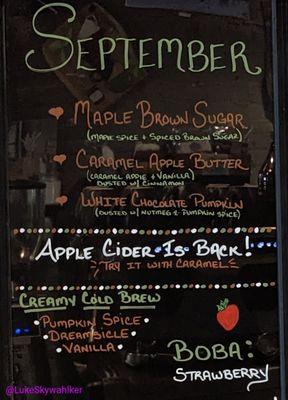 September
Maple Brown Sugar
(Maple Spice + Spiced Brown Sugar)
Caramel Apple Butter
(Caramel Apple + Vanilla)
Dusted w/ Cinnamon
White Chocolate Pumpkin
(Dusted w/ Nutmeg & Pumpkin Spice)
Apple Cider Is Back!
Try it with Caramel
Creamy Cold Brew
Pumpkin Spice
Dreamsicle
Vanilla
Boba:
Strawberry
@LukeSkywahlker